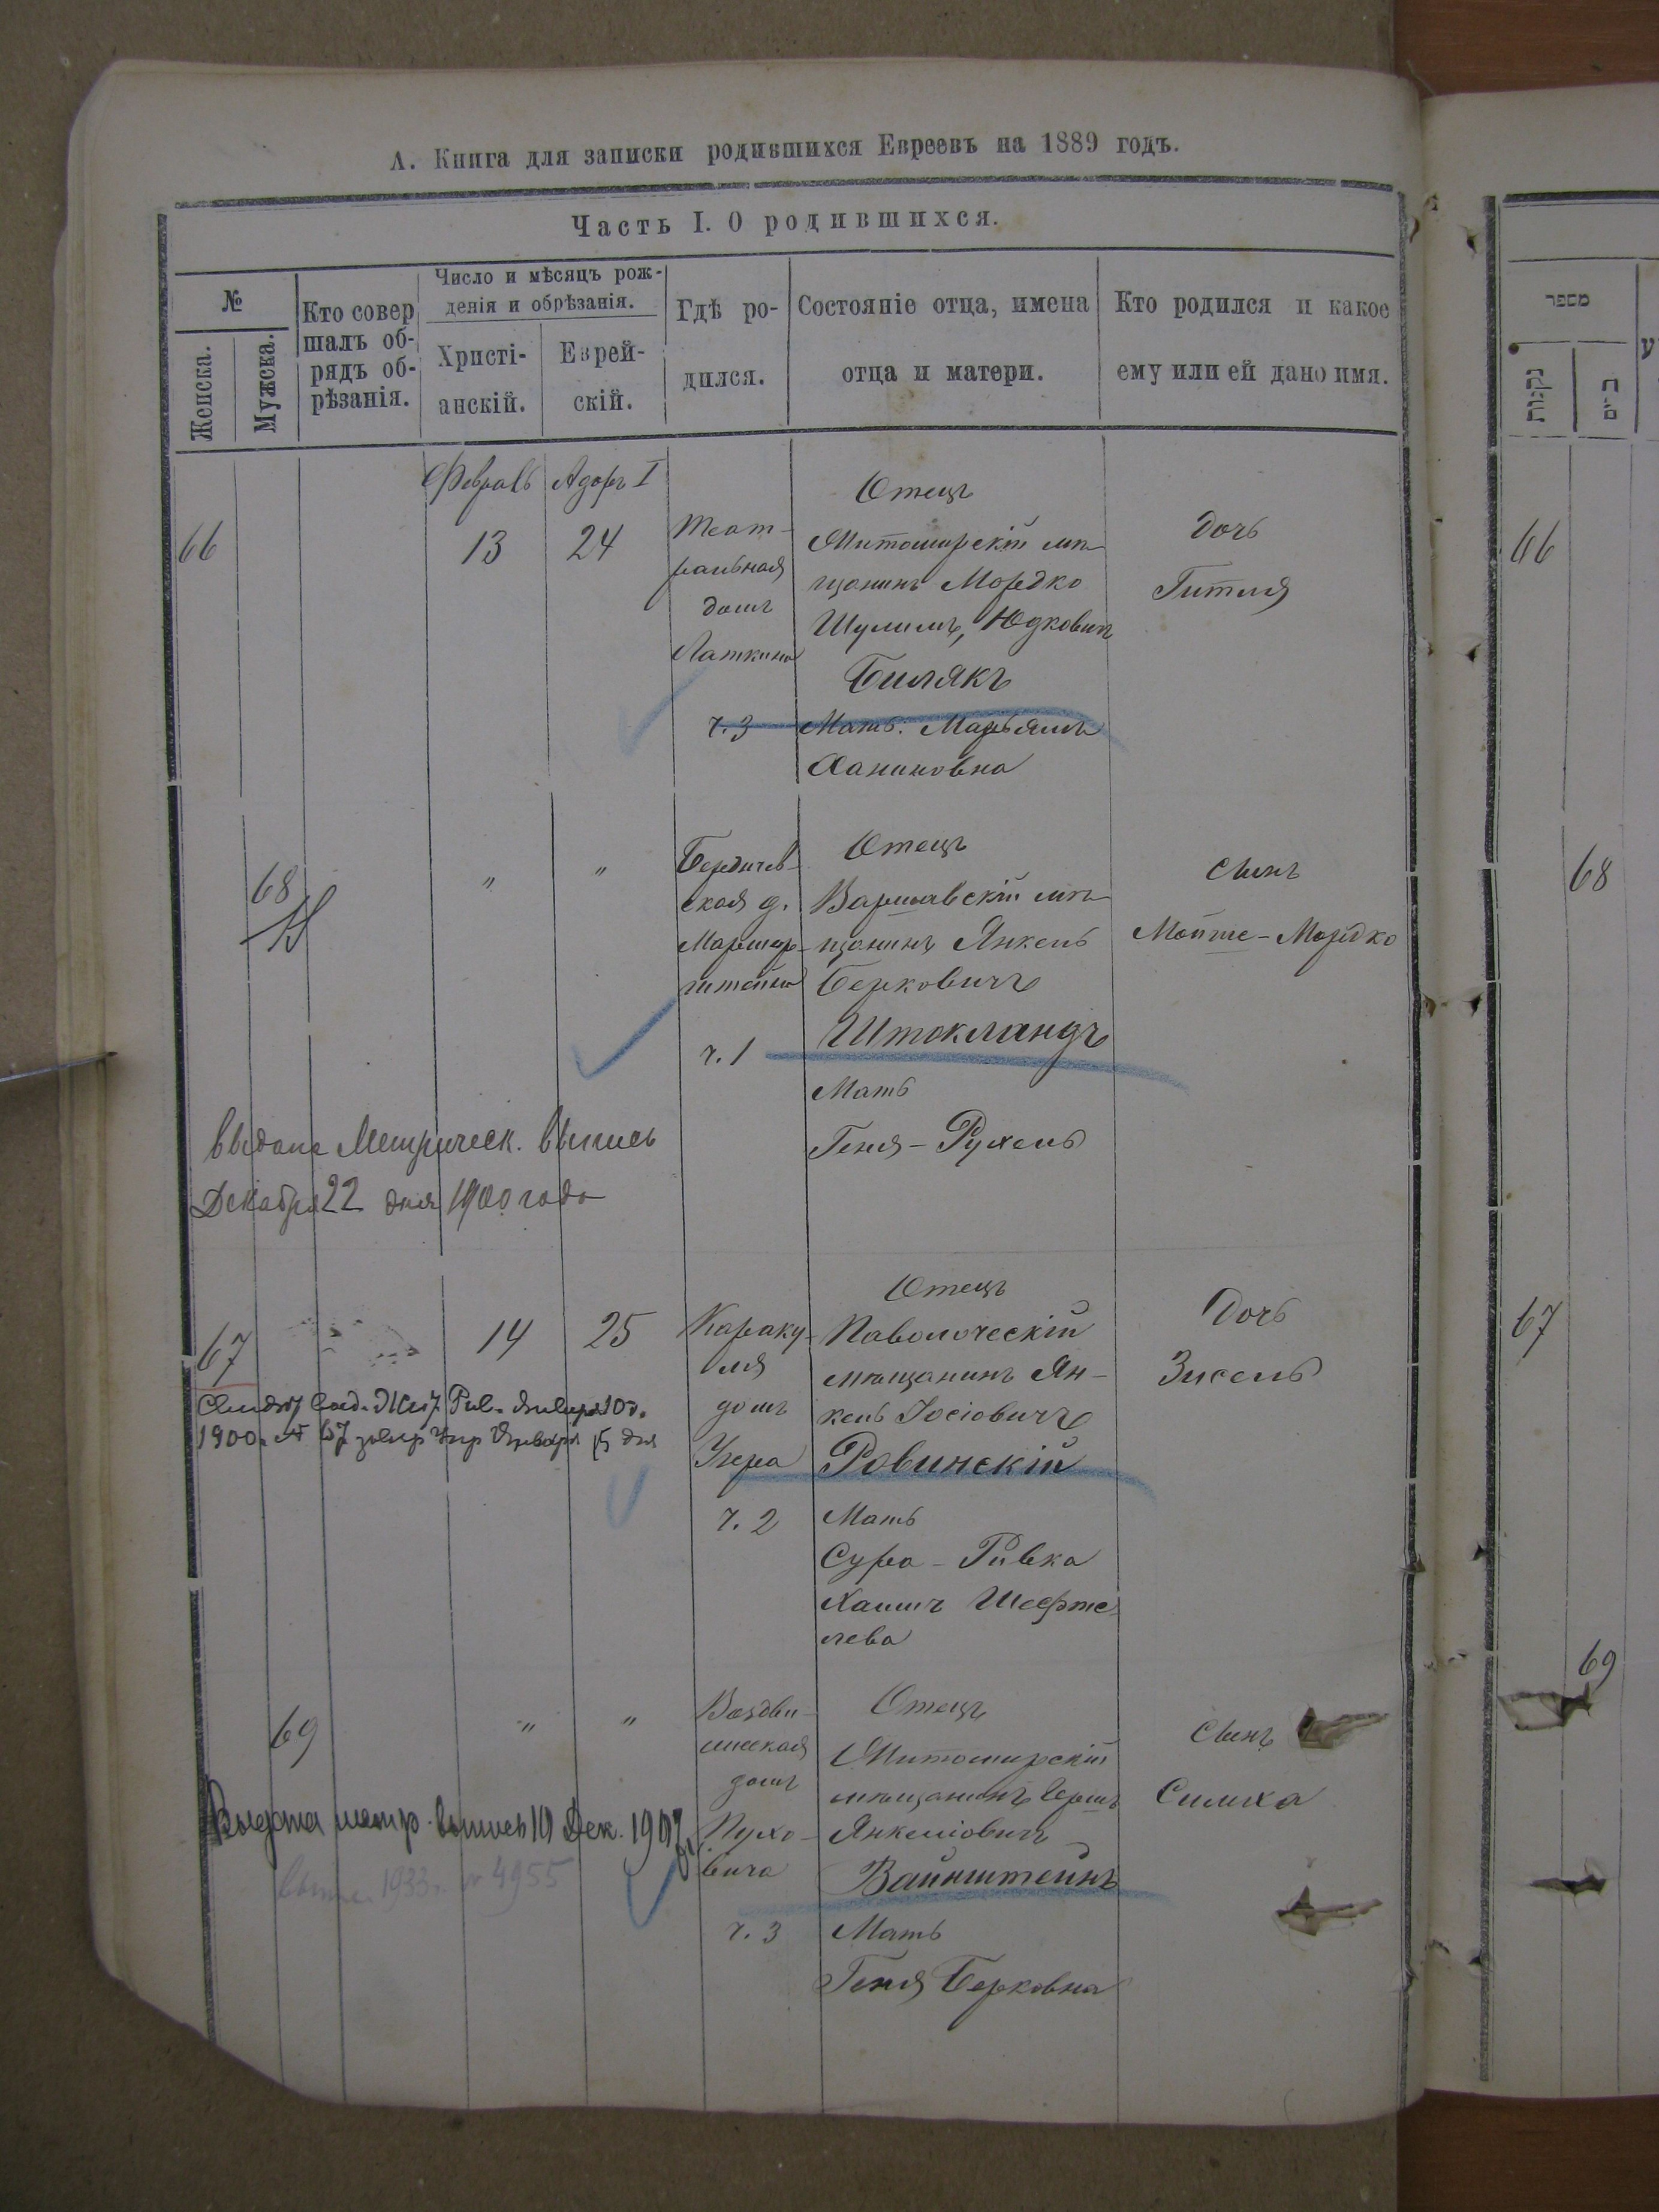 А. Книга для записки родившихся Евреевъ на 1889 годъ.
Часть I. О родившихся.
№
Женска.
Мужска.
Кто совер
шалъ об-
рядъ об-
рѣзанія.
Число и мѣсяцъ рож-
денія и обрѣзанія.
Христі-
анскій.
Еврей-
скій.
Гдѣ ро-
дился.
Состояніе отца, имена
отца и матери.
Кто родился и какое
ему или ей дано имя.
מספר
נקבות
Февраль
Адоръ I
66
13
24
Теат-
ральная
домъ
Латкина
ч. 3
Отецъ
Житомирскій мѣ-
щанинъ Мордко
Шулимъ, Юдковичъ
Билякъ
Мать: Марьямъ
Ханиновна
Дочь
Гитля
66
68
"
"
Бердичев-
ская д.
штейна
ч. 1
Отецъ
Варшавскій мѣ-
щанинъ Янкель
Берковичъ
Штокландъ
Мать
Геня-Рухель
Сынъ
Мойше-Мордко
68
Выдана Метрическ. выпись
Декабря 22 дня 1900 года
67
14
25
Караку-
лія
домъ
Угера
ч. 2
Отецъ
Паволоческій
мѣщанинъ Ян-
кель Іосіовичъ
Ровинскій
Мать
Сура-Ривка
Хаимъ Шефте-
лева
Дочь
Зисель
67
1900 № 67
69
"
"
Воздви-
женская
домъ
Пухо-
вича
ч. 3
Отецъ
Житомирскій
мѣщанинъ Гершъ
Янкеліовичъ
Вайнштейнъ
Мать
Геня Берковна
Сынъ
Симха
69
Выдана метр. выпись 10 Дек. 1907
1933 г. № 4955